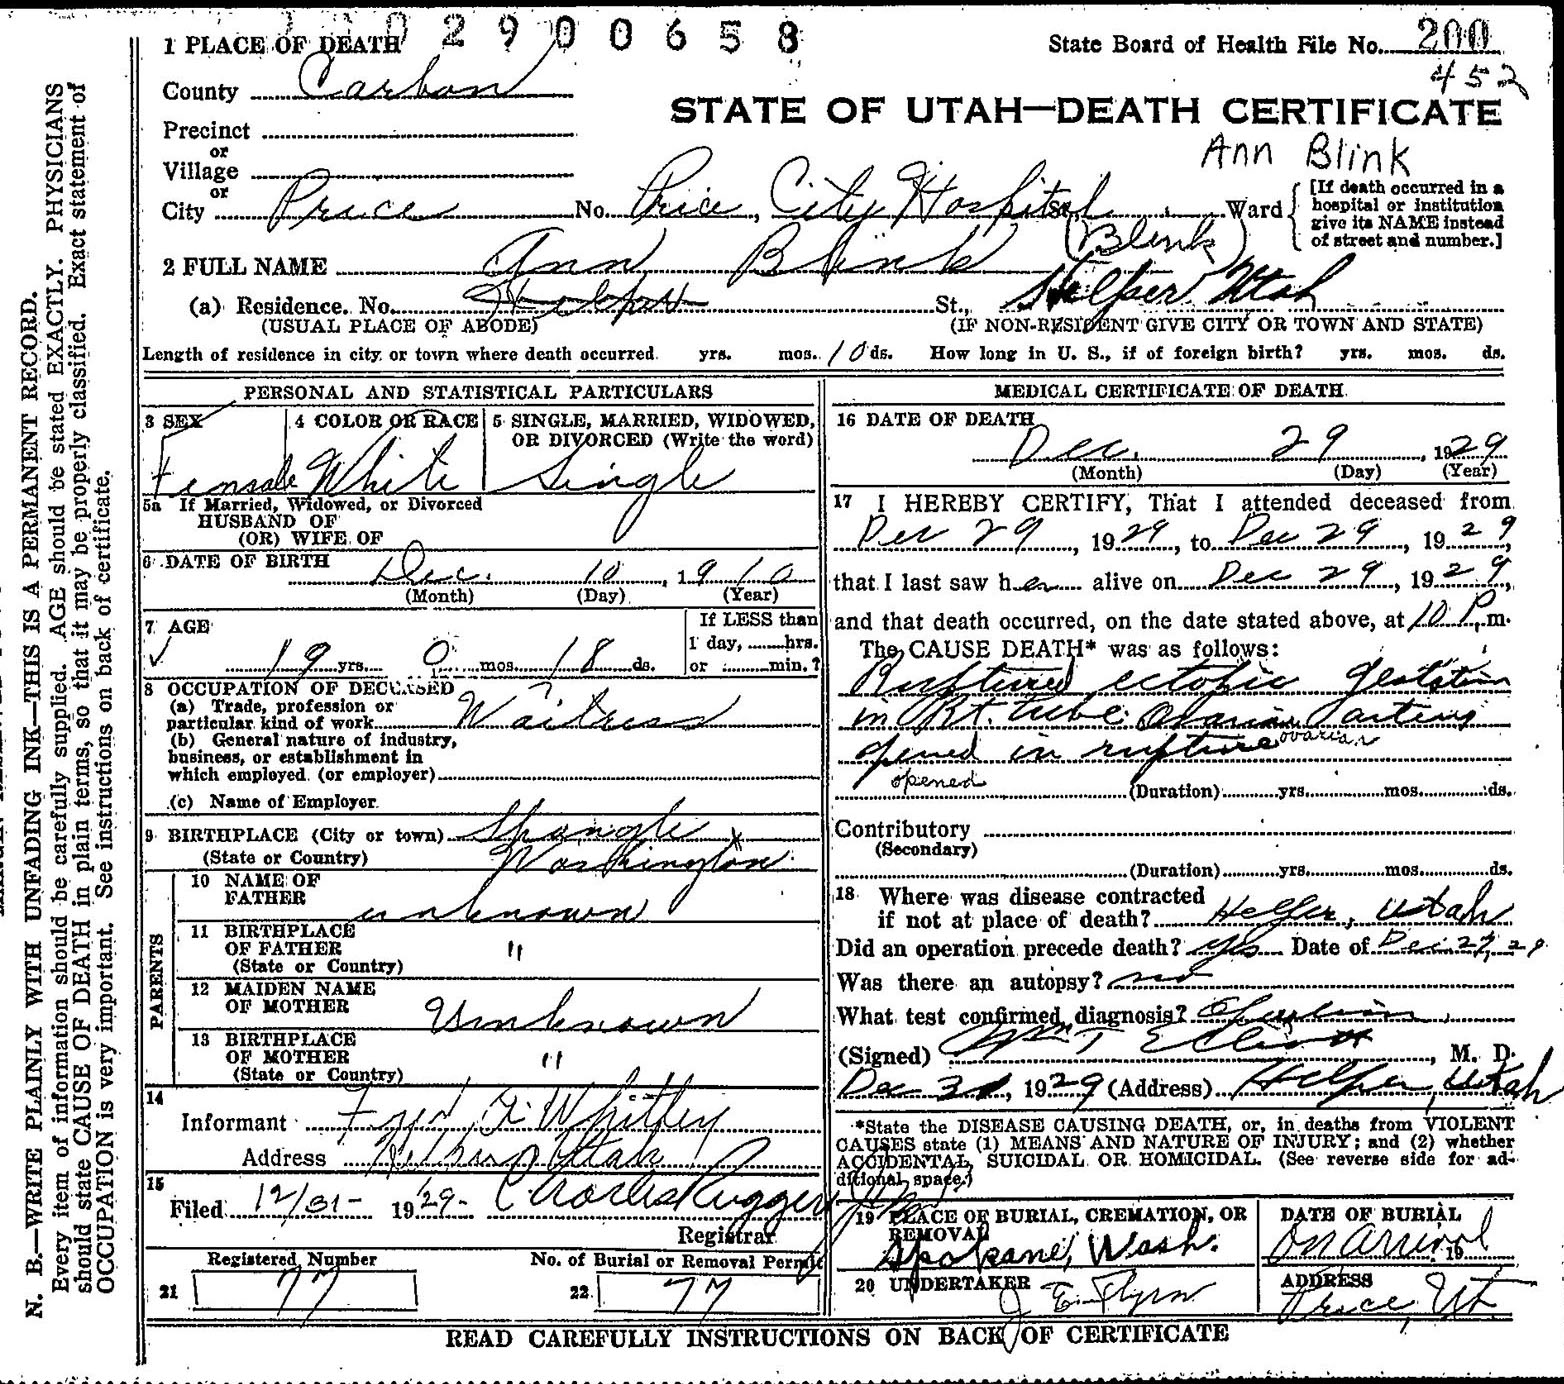 02900658
1 PLACE OF DEATH
State Board of Health File No. 200
452
County Carbon
STATE OF UTAH—DEATH CERTIFICATE
Precinct
or
Ann Blink
Village
or
City Price No. Price City Hospital St., Ward
[If death occurred in a
hospital or institution
give its NAME instead
of street and number.]
(Blink)
2 FULL NAME Ann Blink
(a) Residence. No. St., Helper Utah
(USUAL PLACE OF ABODE) (IF NON-RESIDENT GIVE CITY OR TOWN AND STATE)
Length of residence in city or town where death occurred. yrs. mos. 10 ds. How long in U. S., if of foreign birth? yrs. mos. ds.
PERSONAL AND STATISTICAL PARTICULARS
3 SEX
Female
4 COLOR OR RACE
White
5 SINGLE, MARRIED, WIDOWED,
OR DIVORCED (Write the word)
Single
5a If Married, Widowed, or Divorced
HUSBAND OF
(OR) WIFE OF
6 DATE OF BIRTH
Dec. 10, 1910
(Month) (Day) (Year)
7 AGE
19 yrs. 0 mos. 18 ds.
If LESS than
1 day, hrs.
or min.?
8 OCCUPATION OF DECEASED
(a) Trade, profession or
particular kind of work Waitress
(b) General nature of industry,
business, or establishment in
which employed (or employer)
(c) Name of Employer
9 BIRTHPLACE (City or town) Spangle
(State or Country) Washington
PARENTS
10 NAME OF
FATHER unknown
11 BIRTHPLACE
OF FATHER "
(State or Country)
12 MAIDEN NAME
OF MOTHER Unknown
13 BIRTHPLACE
OF MOTHER "
(State or Country)
14
Informant Fred Whitley
Address Helper Utah
15
Filed 12/31- 1929- Charles Ruggeri
Registrar
Registered Number
21 77
No. of Burial or Removal Permit
22 77
MEDICAL CERTIFICATE OF DEATH
16 DATE OF DEATH
Dec. 29, 1929
(Month) (Day) (Year)
17 I HEREBY CERTIFY, That I attended deceased from
Dec 29, 1929, to Dec 29, 1929,
that I last saw her alive on Dec 29, 1929,
and that death occurred, on the date stated above, at 10 P.m.
The CAUSE DEATH* was as follows:
Ruptured ectopic gestation
in Rt. tube. Ovarian arteries
opened in rupture ovarian
opened
(Duration) yrs. mos. ds.
Contributory
(Secondary)
(Duration) yrs. mos. ds.
18 Where was disease contracted
if not at place of death? Helper, Utah
Did an operation precede death? yes Date of Dec 29, 29
Was there an autopsy? no
What test confirmed diagnosis? Operation
(Signed) Wm T Elliott, M. D.
Dec 31, 1929 (Address) Helper, Utah
*State the DISEASE CAUSING DEATH, or, in deaths from VIOLENT
CAUSES state (1) MEANS AND NATURE OF INJURY; and (2) whether
ACCIDENTAL, SUICIDAL OR HOMICIDAL. (See reverse side for ad-
ditional space.)
19 PLACE OF BURIAL, CREMATION, OR
REMOVAL
Spokane, Wash.
DATE OF BURIAL
On Arrival 19
20 UNDERTAKER
J E Flynn
ADDRESS
Price, Ut
READ CAREFULLY INSTRUCTIONS ON BACK OF CERTIFICATE
N. B.—WRITE PLAINLY WITH UNFADING INK—THIS IS A PERMANENT RECORD.
Every item of information should be carefully supplied. AGE should be stated EXACTLY. PHYSICIANS
should state CAUSE OF DEATH in plain terms, so that it may be properly classified. Exact statement of
OCCUPATION is very important. See instructions on back of certificate.